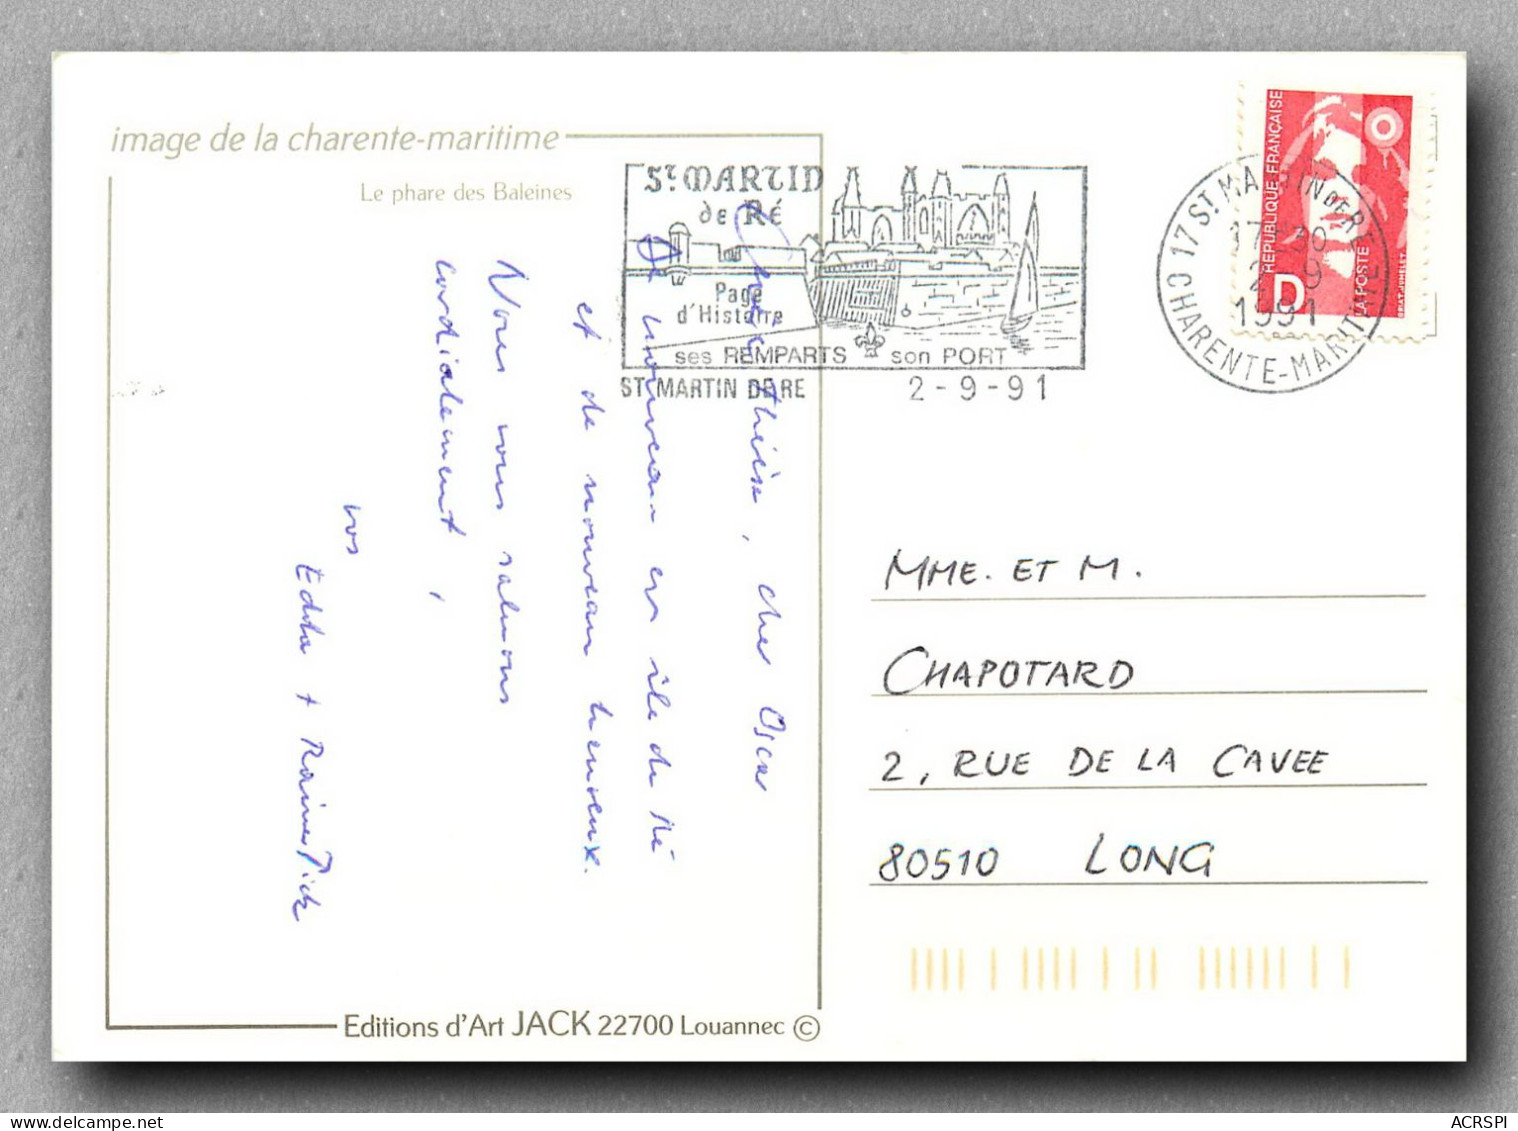 image de la charente-maritime
Le phare des Baleines
St MARTIN
de RÉ
Page
d'Histoire
ses REMPARTS son PORT
ST MARTIN DE RE 2-9-91
17 ST MARTIN DE RE
17H30
2-9
1991
CHARENTE-MARITIME
REPUBLIQUE FRANÇAISE
D
LA POSTE
Chère Thérèse, cher Oscar
De nouveau en île de Ré
et de nouveau heureux.
Nous vous saluons
cordialement,
vos
Edda + Rainer Dick
MME. ET M.
CHAPOTARD
2, RUE DE LA CAVEE
80510 LONG
Editions d'Art JACK 22700 Louannec ©
ACRSPI